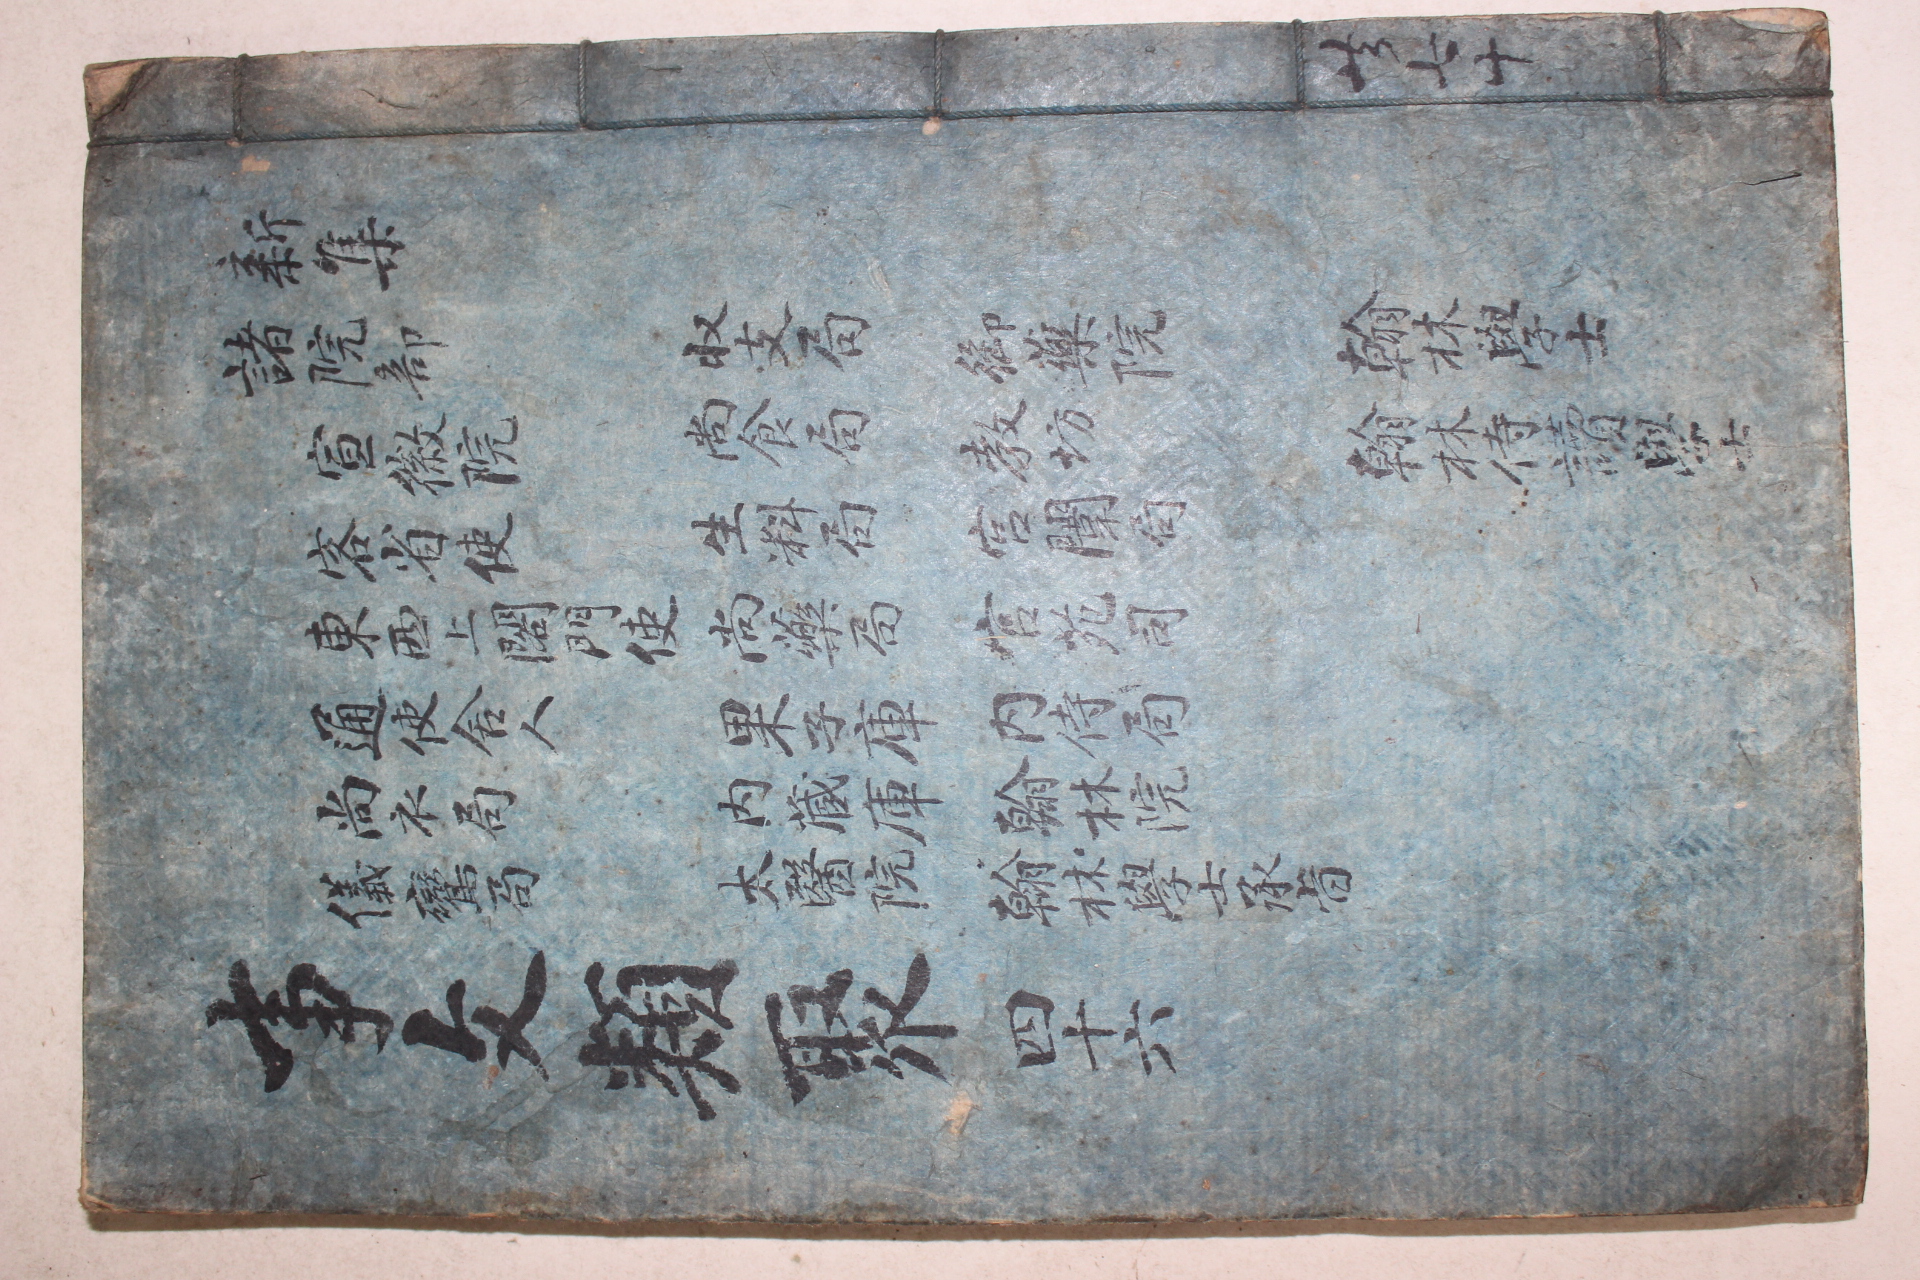 共七十
新集
諸院部
宣徽院
客省使
東西上閤門使
通使舍人
尚衣局
儀鸞局
収支局
尚食局
生料局
尚藥局
果子庫
内藏庫
太醫院
御藥院
教坊
宮闈局
宮苑司
内侍局
翰林院
翰林學士承旨
翰林學士
翰林侍讀學士
事文類聚 四十六